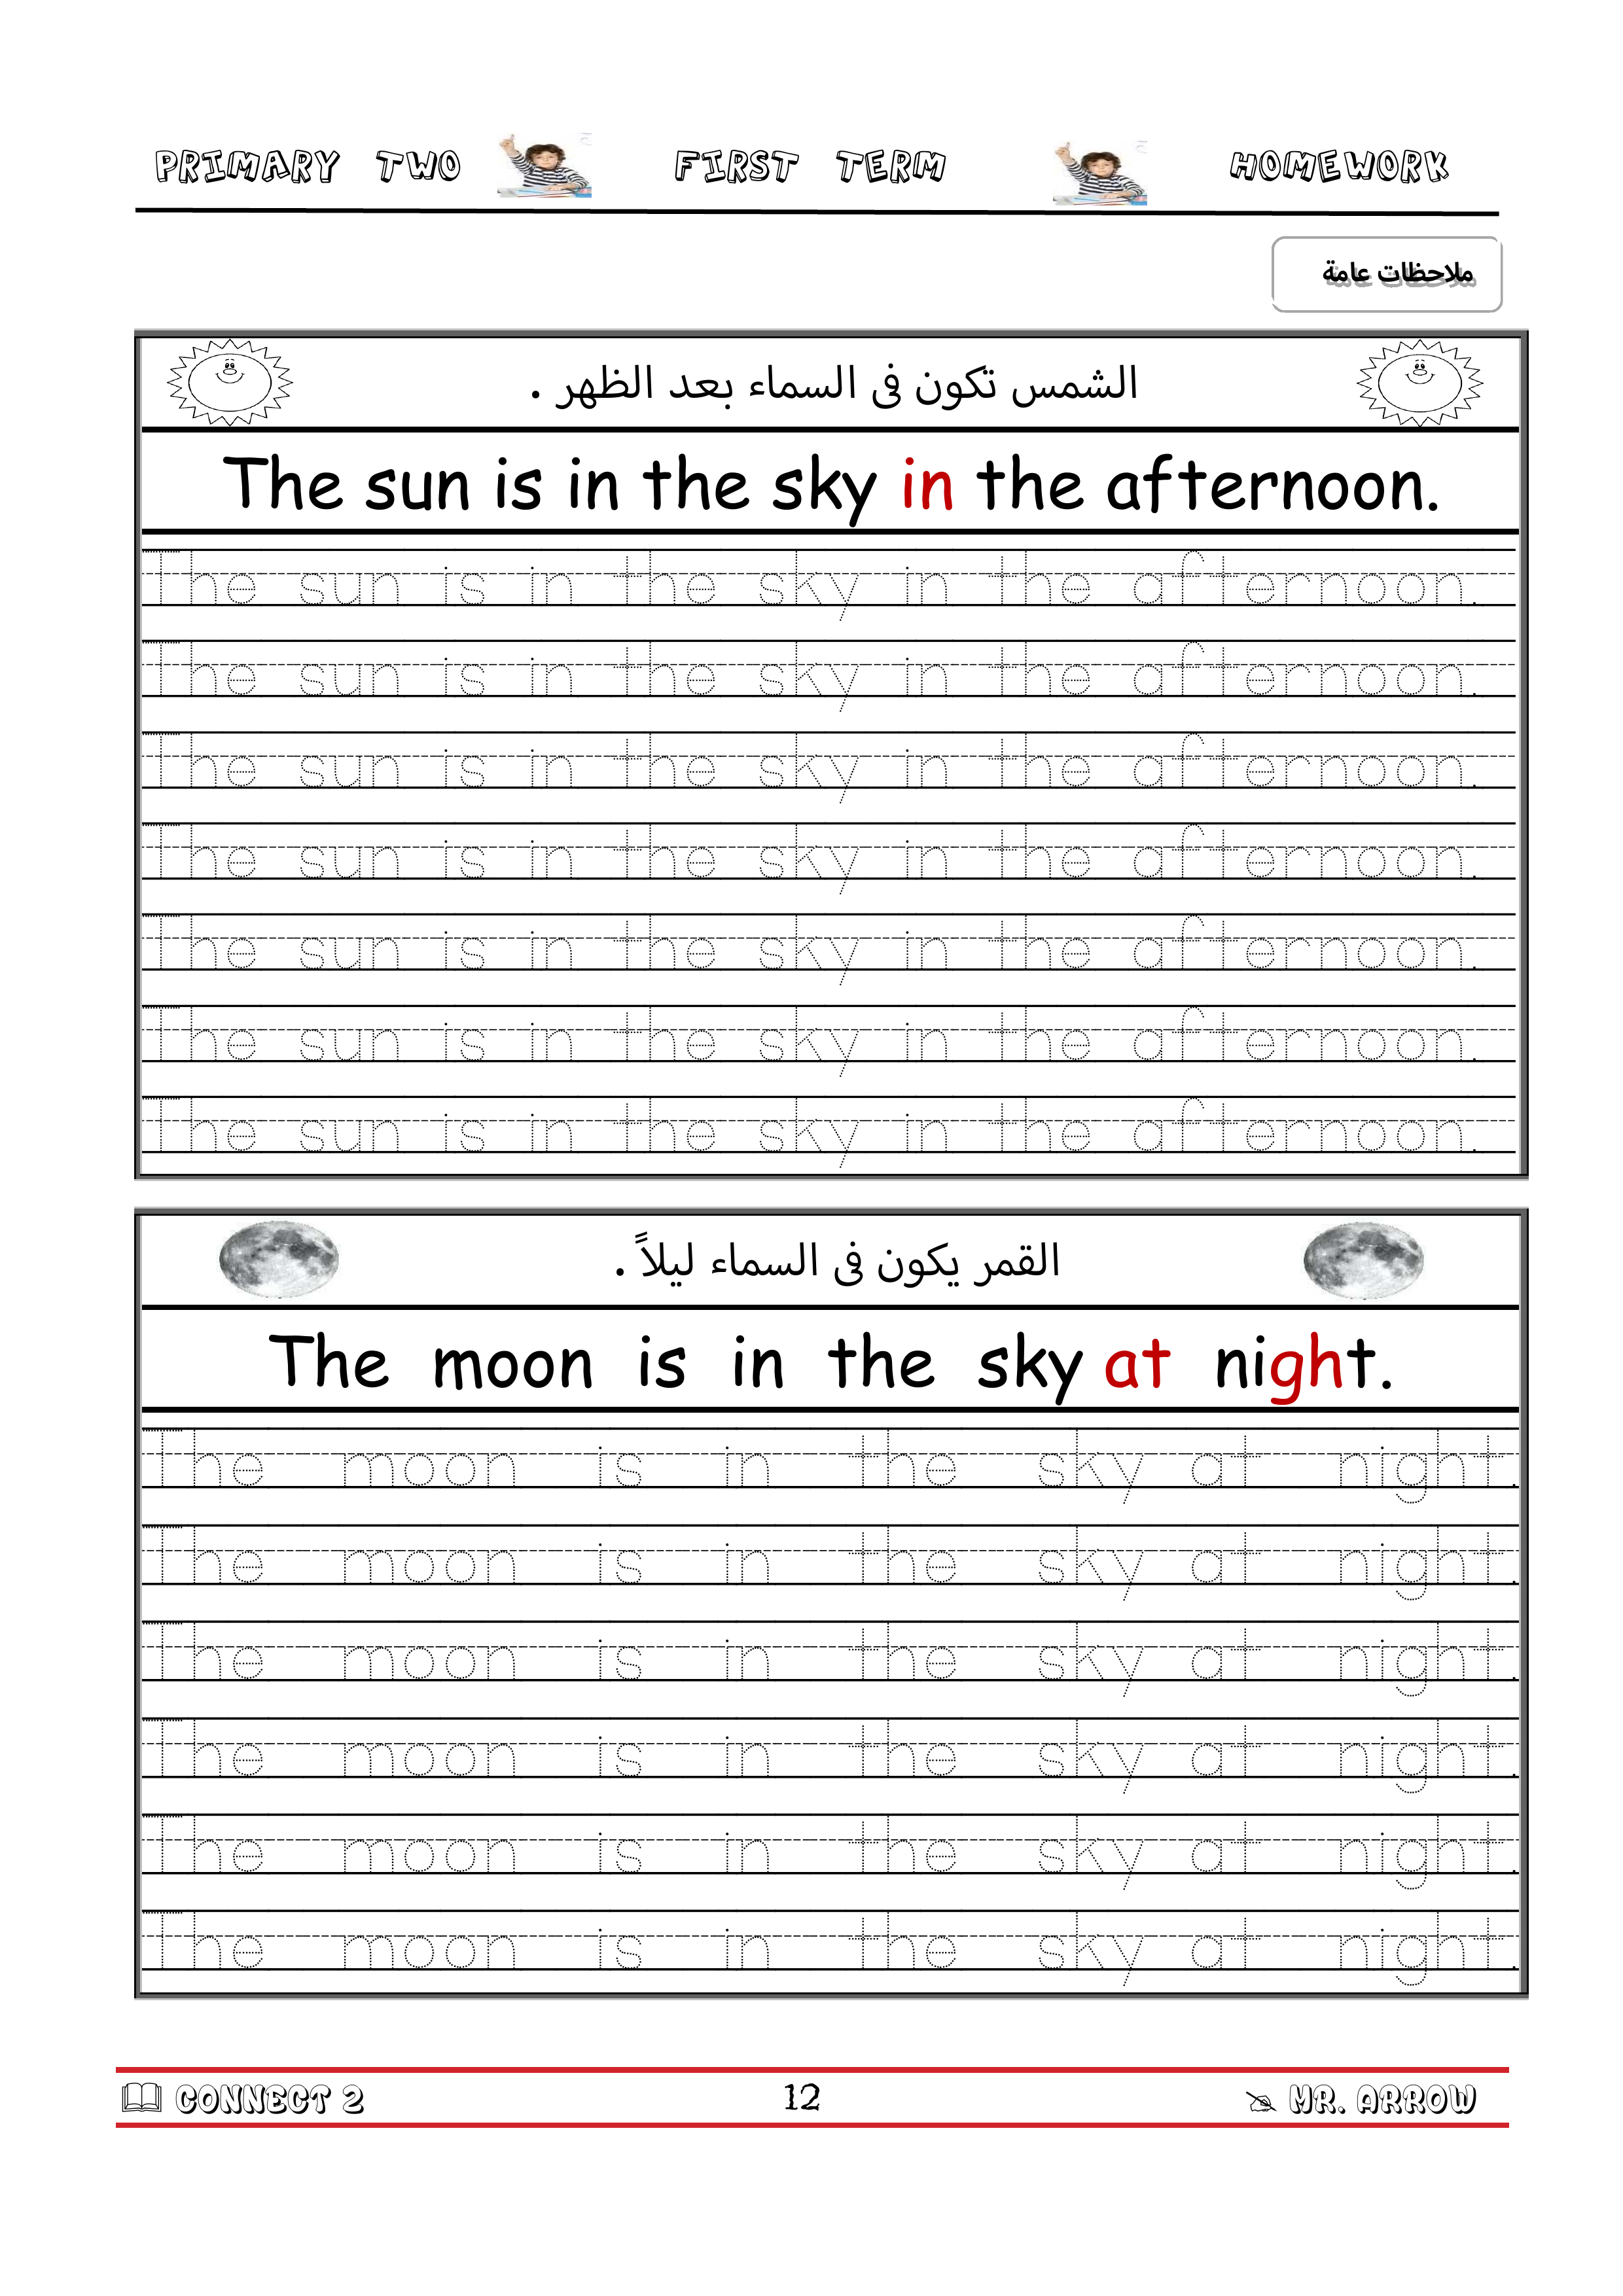 PRIMARY TWO FIRST TERM HOMEWORK
ملاحظات عامة
الشمس تكون فى السماء بعد الظهر .
The sun is in the sky in the afternoon.
The sun is in the sky in the afternoon.
The sun is in the sky in the afternoon.
The sun is in the sky in the afternoon.
The sun is in the sky in the afternoon.
The sun is in the sky in the afternoon.
The sun is in the sky in the afternoon.
The sun is in the sky in the afternoon.
القمر يكون فى السماء ليلاً .
The moon is in the sky at night.
The moon is in the sky at night.
The moon is in the sky at night.
The moon is in the sky at night.
The moon is in the sky at night.
The moon is in the sky at night.
The moon is in the sky at night.
CONNECT 2 12 MR. ARROW